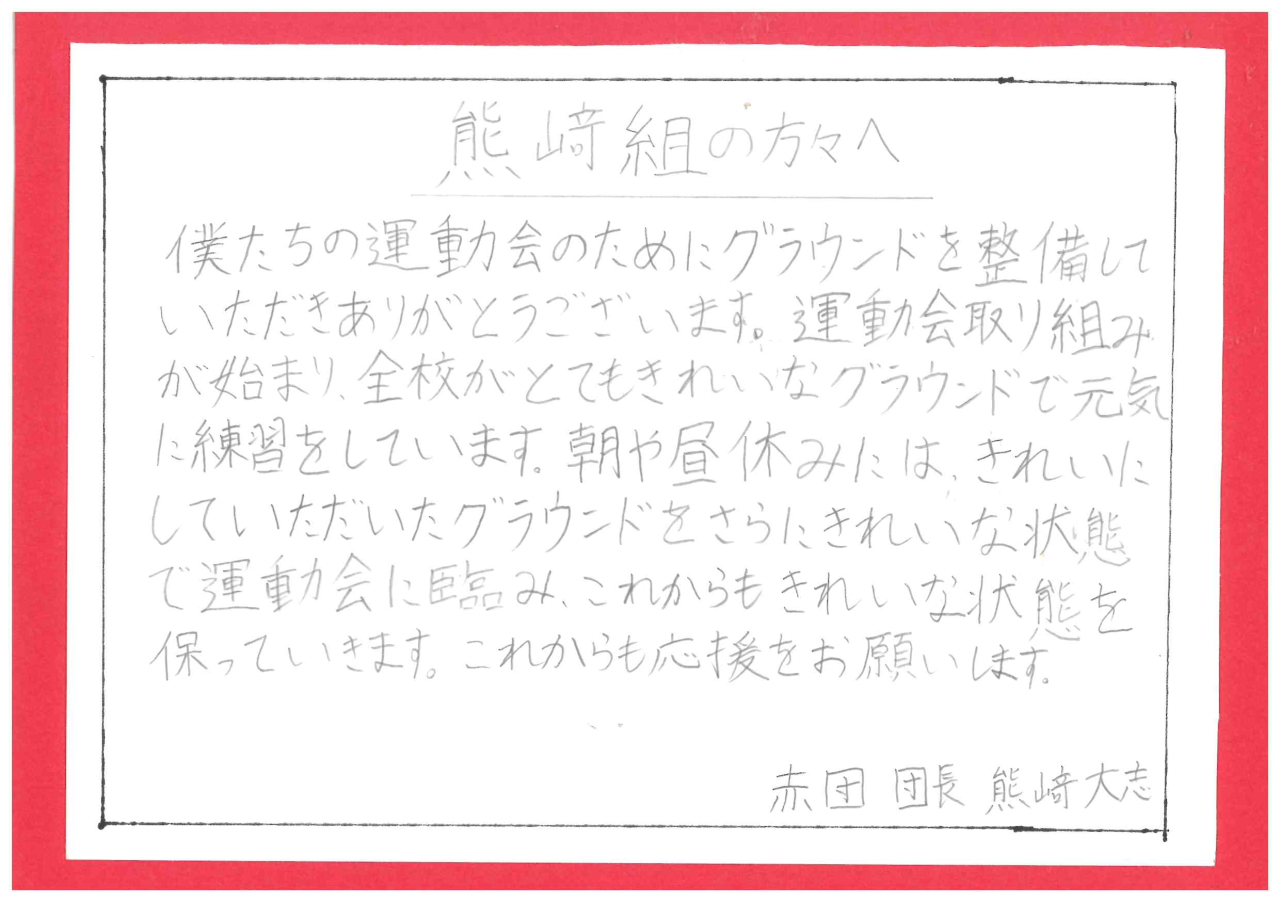 熊﨑組の方々へ
僕たちの運動会のためにグラウンドを整備して
いただきありがとうございます。運動会取り組み
が始まり、全校がとてもきれいなグラウンドで元気
に練習をしています。朝や昼休みには、きれいに
していただいたグラウンドをさらにきれいな状態
で運動会に臨み、これからもきれいな状態を
保っていきます。これからも応援をお願いします。
赤団 団長 熊﨑大志